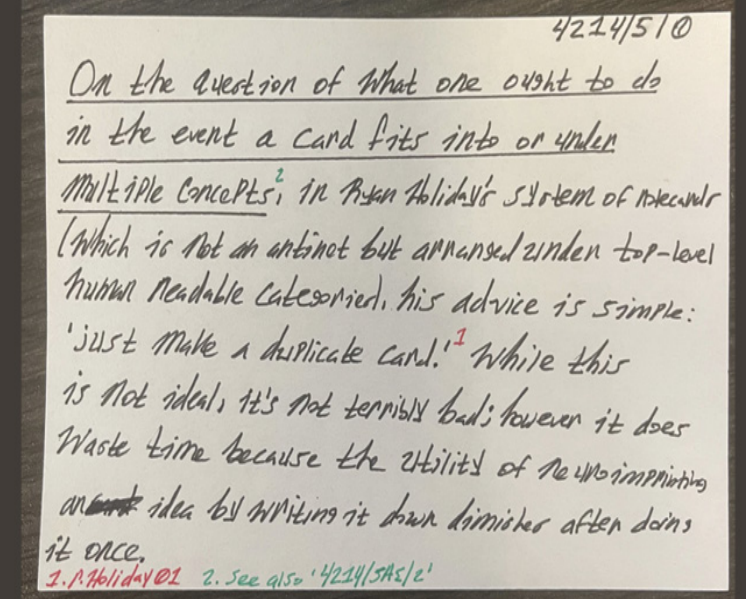 4214/5/0
On the question of what one ought to do
in the event a card fits into or under
multiple concepts,² in Ryan Holiday's system of notecards
(which is not an antinet but arranged under top-level
human readable categories), his advice is simple:
'just make a duplicate card.'¹ While this
is not ideal, it's not terribly bad; however it does
waste time because the utility of neuroimprinting
an idea by writing it down dimishes after doing
it once.
1. R.Holiday 01 2. See also '4214/5AE/2'